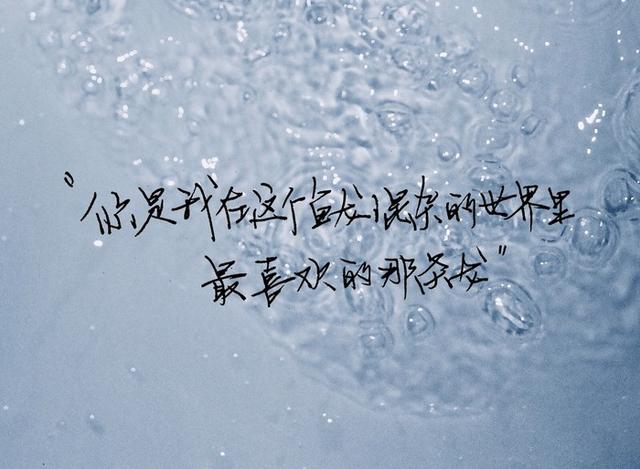 “你是我在这个鱼龙混杂的世界里
最喜欢的那条龙”